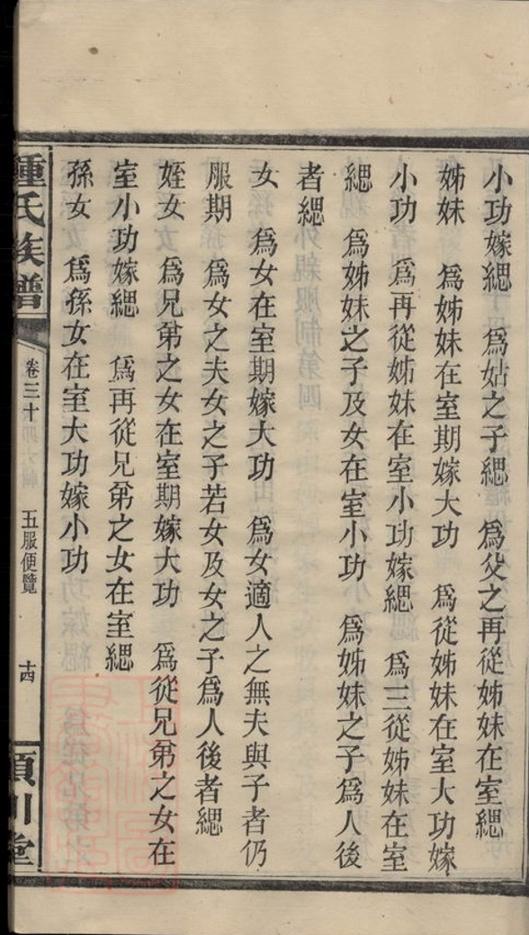 小功嫁緦　為姑之子緦　為父之再從姊妹在室緦
姊妹　為姊妹在室期嫁大功　為從姊妹在室大功嫁
小功　為再從姊妹在室小功嫁緦　為三從姊妹在室
緦　為姊妹之子及女在室小功　為姊妹之子為人後
者緦
女　為女在室期嫁大功　為女適人之無夫與子者仍
服期　為女之夫女之子若女及女之子為人後者緦
姪女　為兄弟之女在室期嫁大功　為從兄弟之女在
室小功嫁緦　為再從兄弟之女在室緦
孫女　為孫女在室大功嫁小功
鍾氏族譜　卷三十　五服便覽　十四　潁川堂